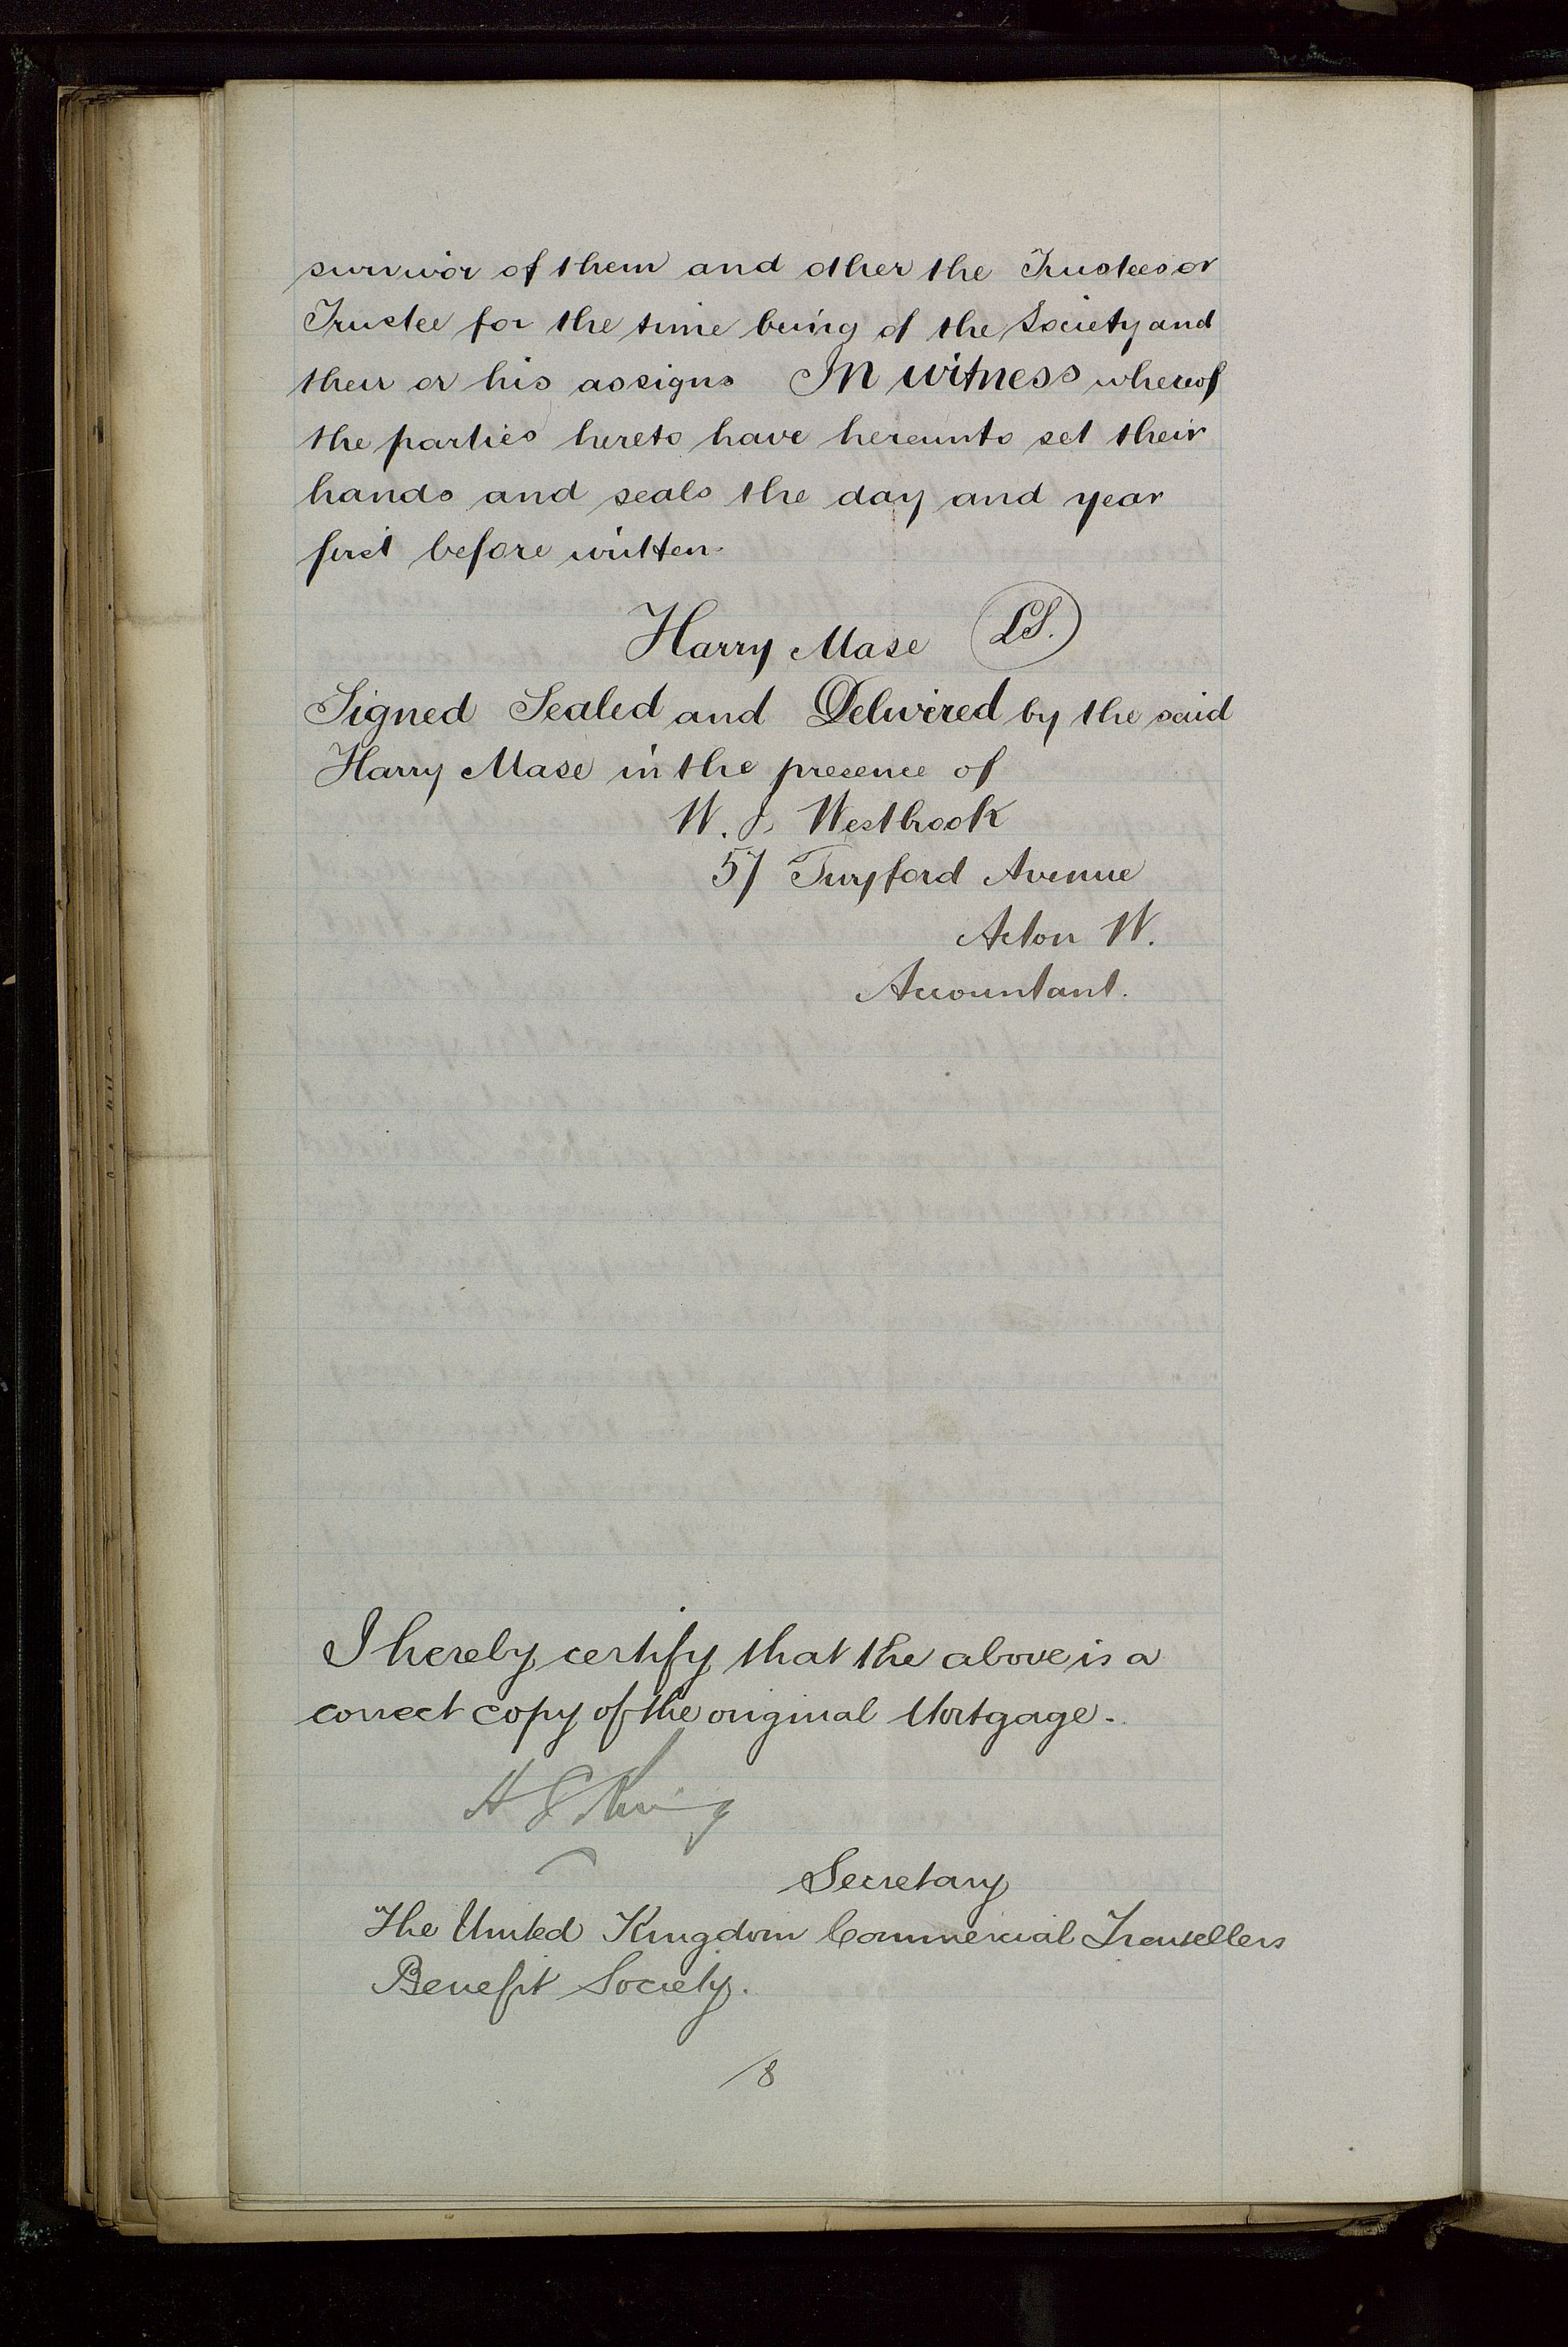 survivor of them and other the Trustees or
Trustee for the time being of the Society and
their or his assigns In witness whereof
the parties hereto have hereunto set their
hands and seals the day and year
first before written.
Harry Mase LS.
Signed Sealed and Delivered by the said
Harry Mase in the presence of
W. J. Westbrook
57 Twyford Avenue
Acton W.
Accountant.
I hereby certify that the above is a
correct copy of the original Mortgage.
Secretary
The United Kingdom Commercial Travellers
Benefit Society.
8